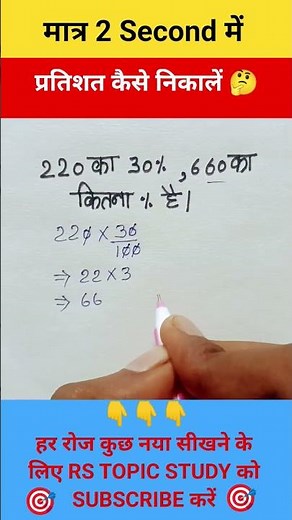 मात्र 2 Second में
प्रतिशत कैसे निकालें 🤔
220 का 30% , 660 का
कितना % है।
220 × 30/100
⇒ 22 × 3
⇒ 66
👇👇👇
हर रोज कुछ नया सीखने के
लिए RS TOPIC STUDY को
🎯 SUBSCRIBE करें 🎯